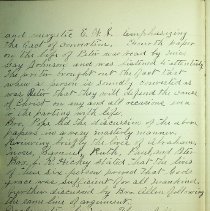 and energetic C. W. emphasizing
the fact of conversion. Fourth paper
on the life of Peter was read by Miss
May Johnson and was listened to attentively
The writer brought out the fact that
when a person is soundly converted as
was Peter that they will defend the cause
of Christ on any and all occasions even
to the parting with life.
Bro. Pope led the discussion of the above
papers in a very masterly manner,
reviewing briefly the lives of Abraham,
Moses, Samuel, Ruth, Paul and Peter
Bro. L. R. Hickey stated that the lives
of these six persons proved that God's
grace was sufficient for all mankind,
further discussed by Bro. Allen following
the same line of argument.